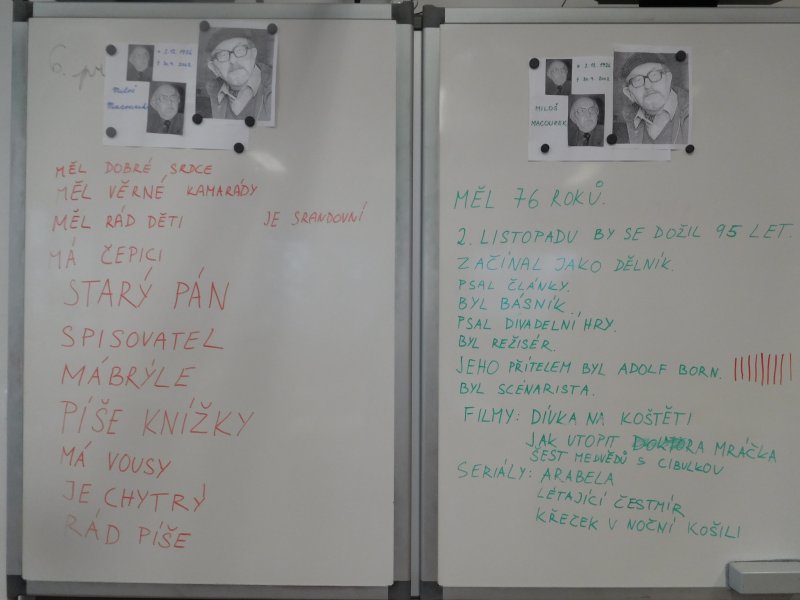 6. pr
* 2.12.1926
† 30.9.2002
Miloš
Macourek
MĚL DOBRÉ SRDCE
MĚL VĚRNÉ KAMARÁDY
MĚL RÁD DĚTI JE SRANDOVNÍ
MÁ ČEPICI
STARÝ PÁN
SPISOVATEL
MÁBRÝLE
PÍŠE KNÍŽKY
MÁ VOUSY
JE CHYTRÝ
RÁD PÍŠE
* 2.12.1926
† 30.9.2002
MILOŠ
MACOUREK
MĚL 76 ROKŮ.
2. LISTOPADU BY SE DOŽIL 95 LET.
ZAČÍNAL JAKO DĚLNÍK.
PSAL ČLÁNKY.
BYL BÁSNÍK.
PSAL DIVADELNÍ HRY.
BYL REŽISÉR.
JEHO PŘÍTELEM BYL ADOLF BORN.
BYL SCÉNÁRISTA.
FILMY: DÍVKA NA KOŠTĚTI
JAK UTOPIT DOKTORA MRÁČKA
ŠEST MEDVĚDŮ S CIBULKOU
SERIÁLY: ARABELA
LÉTAJÍCÍ ČESTMÍR
KŘEČEK V NOČNÍ KOŠILI